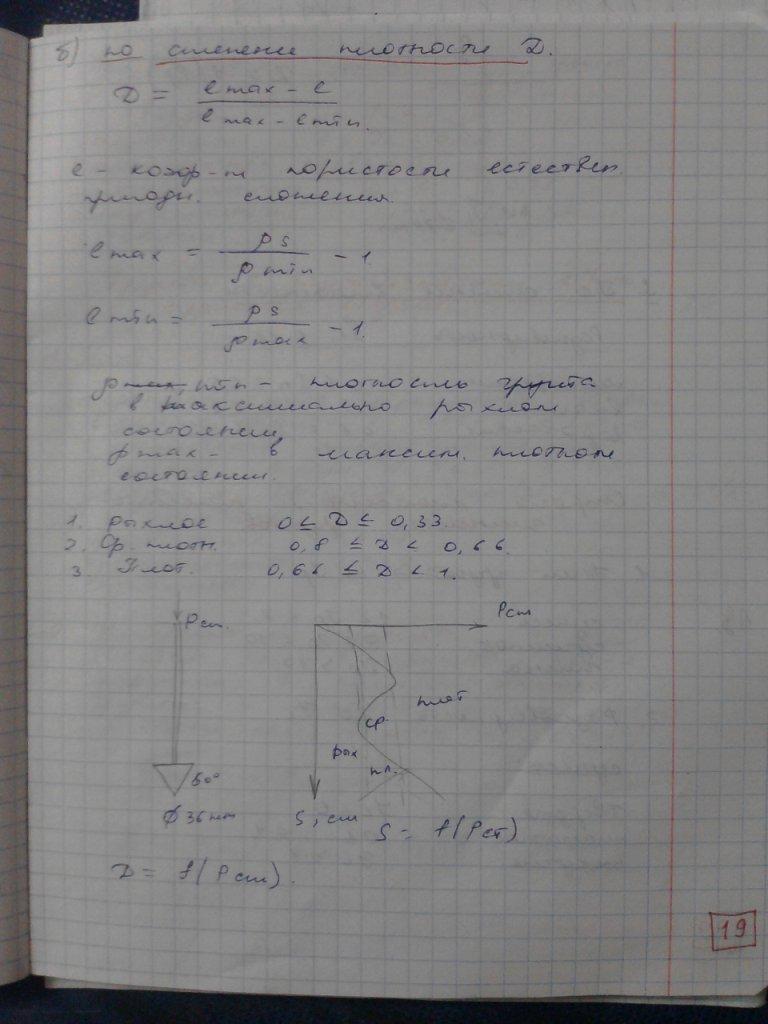 б) по степени плотности D.
D = (e max - e) / (e max - e min.)
e - коэф-т пористости естествен.
природн. сложения.
e max = ρs / ρ min - 1
e min = ρs / ρ max - 1.
ρ min - плотность грунта
в максимально рыхлом
состоянии,
ρ max - в максим. плотном
состоянии.
1. рыхлое 0 ≤ D ≤ 0,33.
2. Ср. плотн. 0,8 ≤ D < 0,66.
3. Плот. 0,66 ≤ D < 1.
Рст. Рст
плот
ср.
рых
пл.
60°
Ф 36мм S, см S = f(Рст)
D = f(Рст).
19